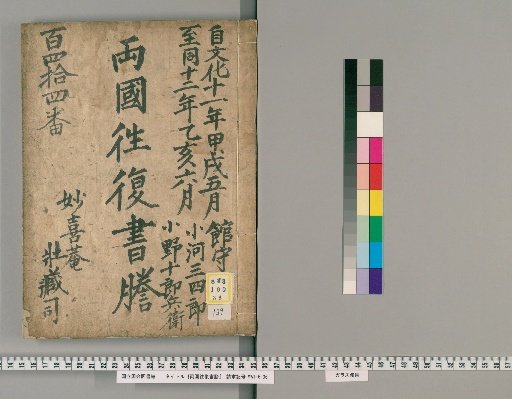 自文化十一年甲戌五月
至同十二年乙亥六月
館守
小河三四郎
小野十郎兵衛
両國往復書謄
妙喜菴
壮蔵司
百四拾四番
139
ガラス使用